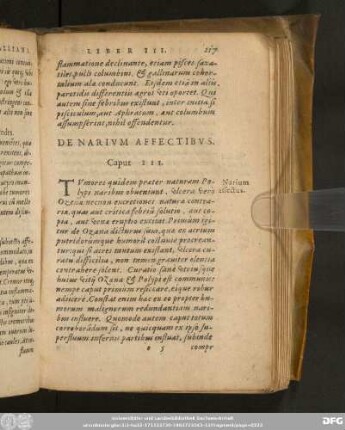 LIBER III. 217
flammatione declinante, etiam pisces saxa-
tiles, pulli columbini, & gallinarum
alæ conducunt. Eisdem etiam in aliis
parotidis differentiis agros uti oportet. Qui
autem sine febribus existunt, inter initia si
pisciculum, aut Apharum, aut columbum
assumpserint, nihil offendentur.
DE NARIVM AFFECTIBVS.
Caput III.
TVmores quidem præter naturam Po-
lypi naribus obueniunt, vlcera verò
Ozæna necnon excretiones naturæ contra-
riæ, quas aut critica febrem soluens, aut co-
pia, aut vena erupta excitat. Primùm igi-
tur de Ozæna dicturus sum, quæ ex acrium
putridorumque humorum collectione procrean-
tur: qui si acres tantùm existant, vlcera cu-
ratu difficilia, non tamen grauiter olentia
contrahere solent. Curatio sanè vtriusque
huius vitij Ozæna & Polypi est communis:
nempe caput primùm resiccare, eique robur
adiicere. Constat enim hæc ex eo propter hu-
morum malignorum redundantiam nari-
bus influere. Quomodo autem caput totum
corroborandum sit, ne quicquam ex ipso su-
perfluum inferius partibus instuat, subinde
e 5 compr
Narium
affectus.